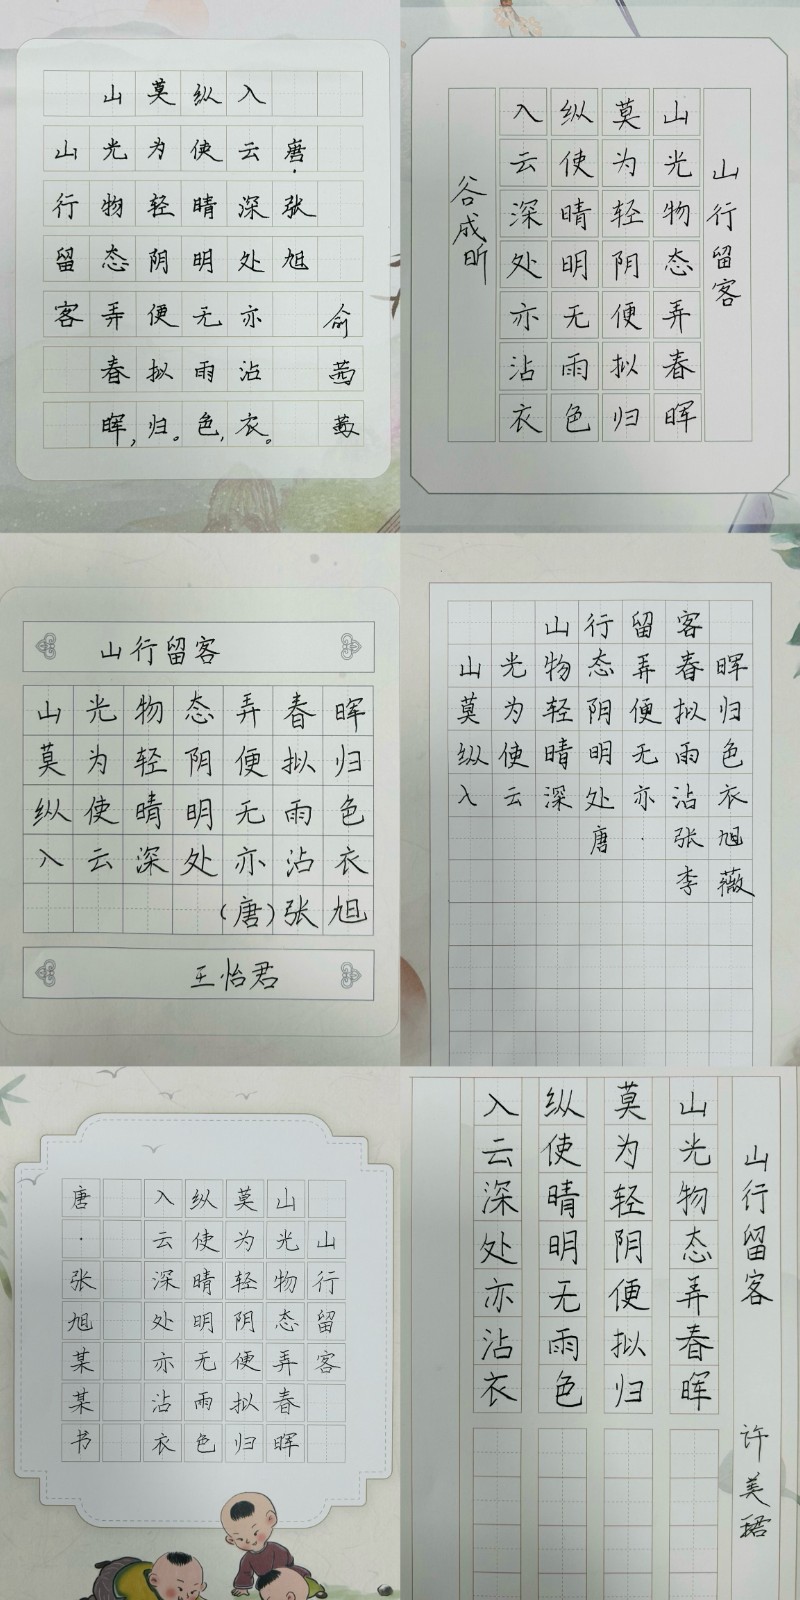 山行留客
山光物态弄春晖,
莫为轻阴便拟归。
纵使晴明无雨色,
入云深处亦沾衣。
唐·张旭
俞
山行留客
山光物态弄春晖
莫为轻阴便拟归
纵使晴明无雨色
入云深处亦沾衣
谷成昕
山行留客
山光物态弄春晖
莫为轻阴便拟归
纵使晴明无雨色
入云深处亦沾衣
(唐)张旭
王怡君
山行留客
山光物态弄春晖
莫为轻阴便拟归
纵使晴明无雨色
入云深处亦沾衣
唐·张旭
李薇
山行留客
山光物态弄春晖
莫为轻阴便拟归
纵使晴明无雨色
入云深处亦沾衣
唐·张旭某某书
山行留客
许美
山光物态弄春晖
莫为轻阴便拟归
纵使晴明无雨色
入云深处亦沾衣